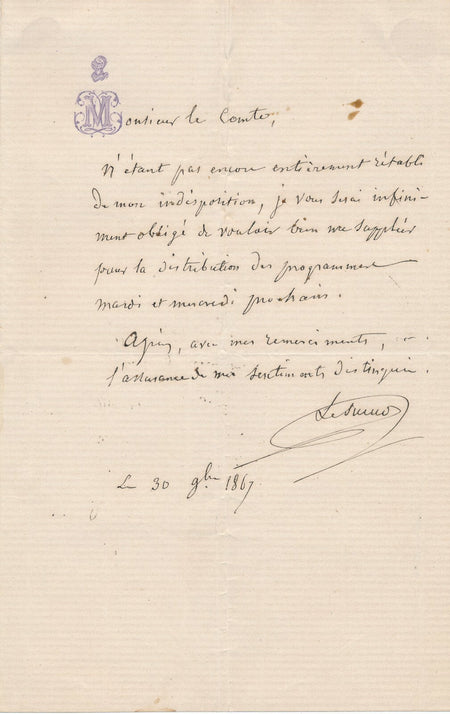 Monsieur le Comte,
N'étant pas encore entièrement rétabli
de mon indisposition, je vous serai infini-
ment obligé de vouloir bien me suppléer
pour la distribution des programmes
mardi et mercredi prochains.
Agréez, avec mes remerciments,
l'assurance de mes sentiments distingués.
Le 30 9bre 1867